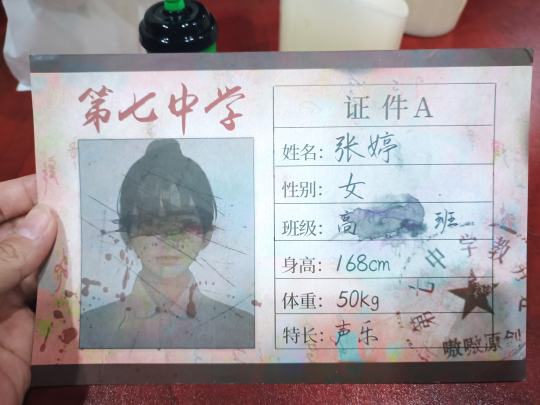 第七中学
证件A
姓名：张婷
性别：女
班级：高 班
身高：168cm
体重：50kg
特长：声乐
第七中学教务
嗷嗷原创